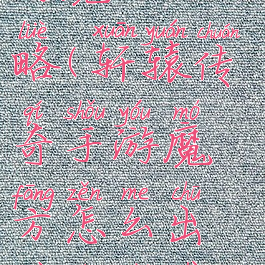 lüè xuān yuán chuán
略(轩辕传
qí shǒu yóu mó
奇手游魔
fāng zěn me chū
方怎么出